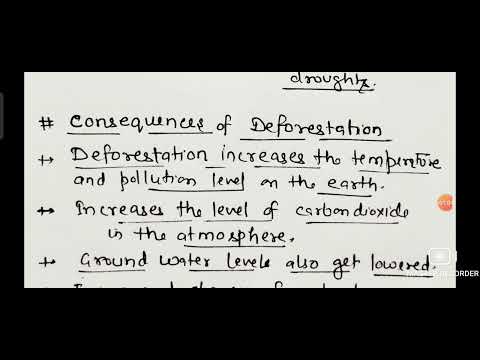 droughts.
# Consequences of Deforestation
→ Deforestation increases the temperature
and pollution level on the earth.
→ Increases the level of carbondioxide
in the atmosphere.
→ Ground water levels also get lowered.
RECORDER